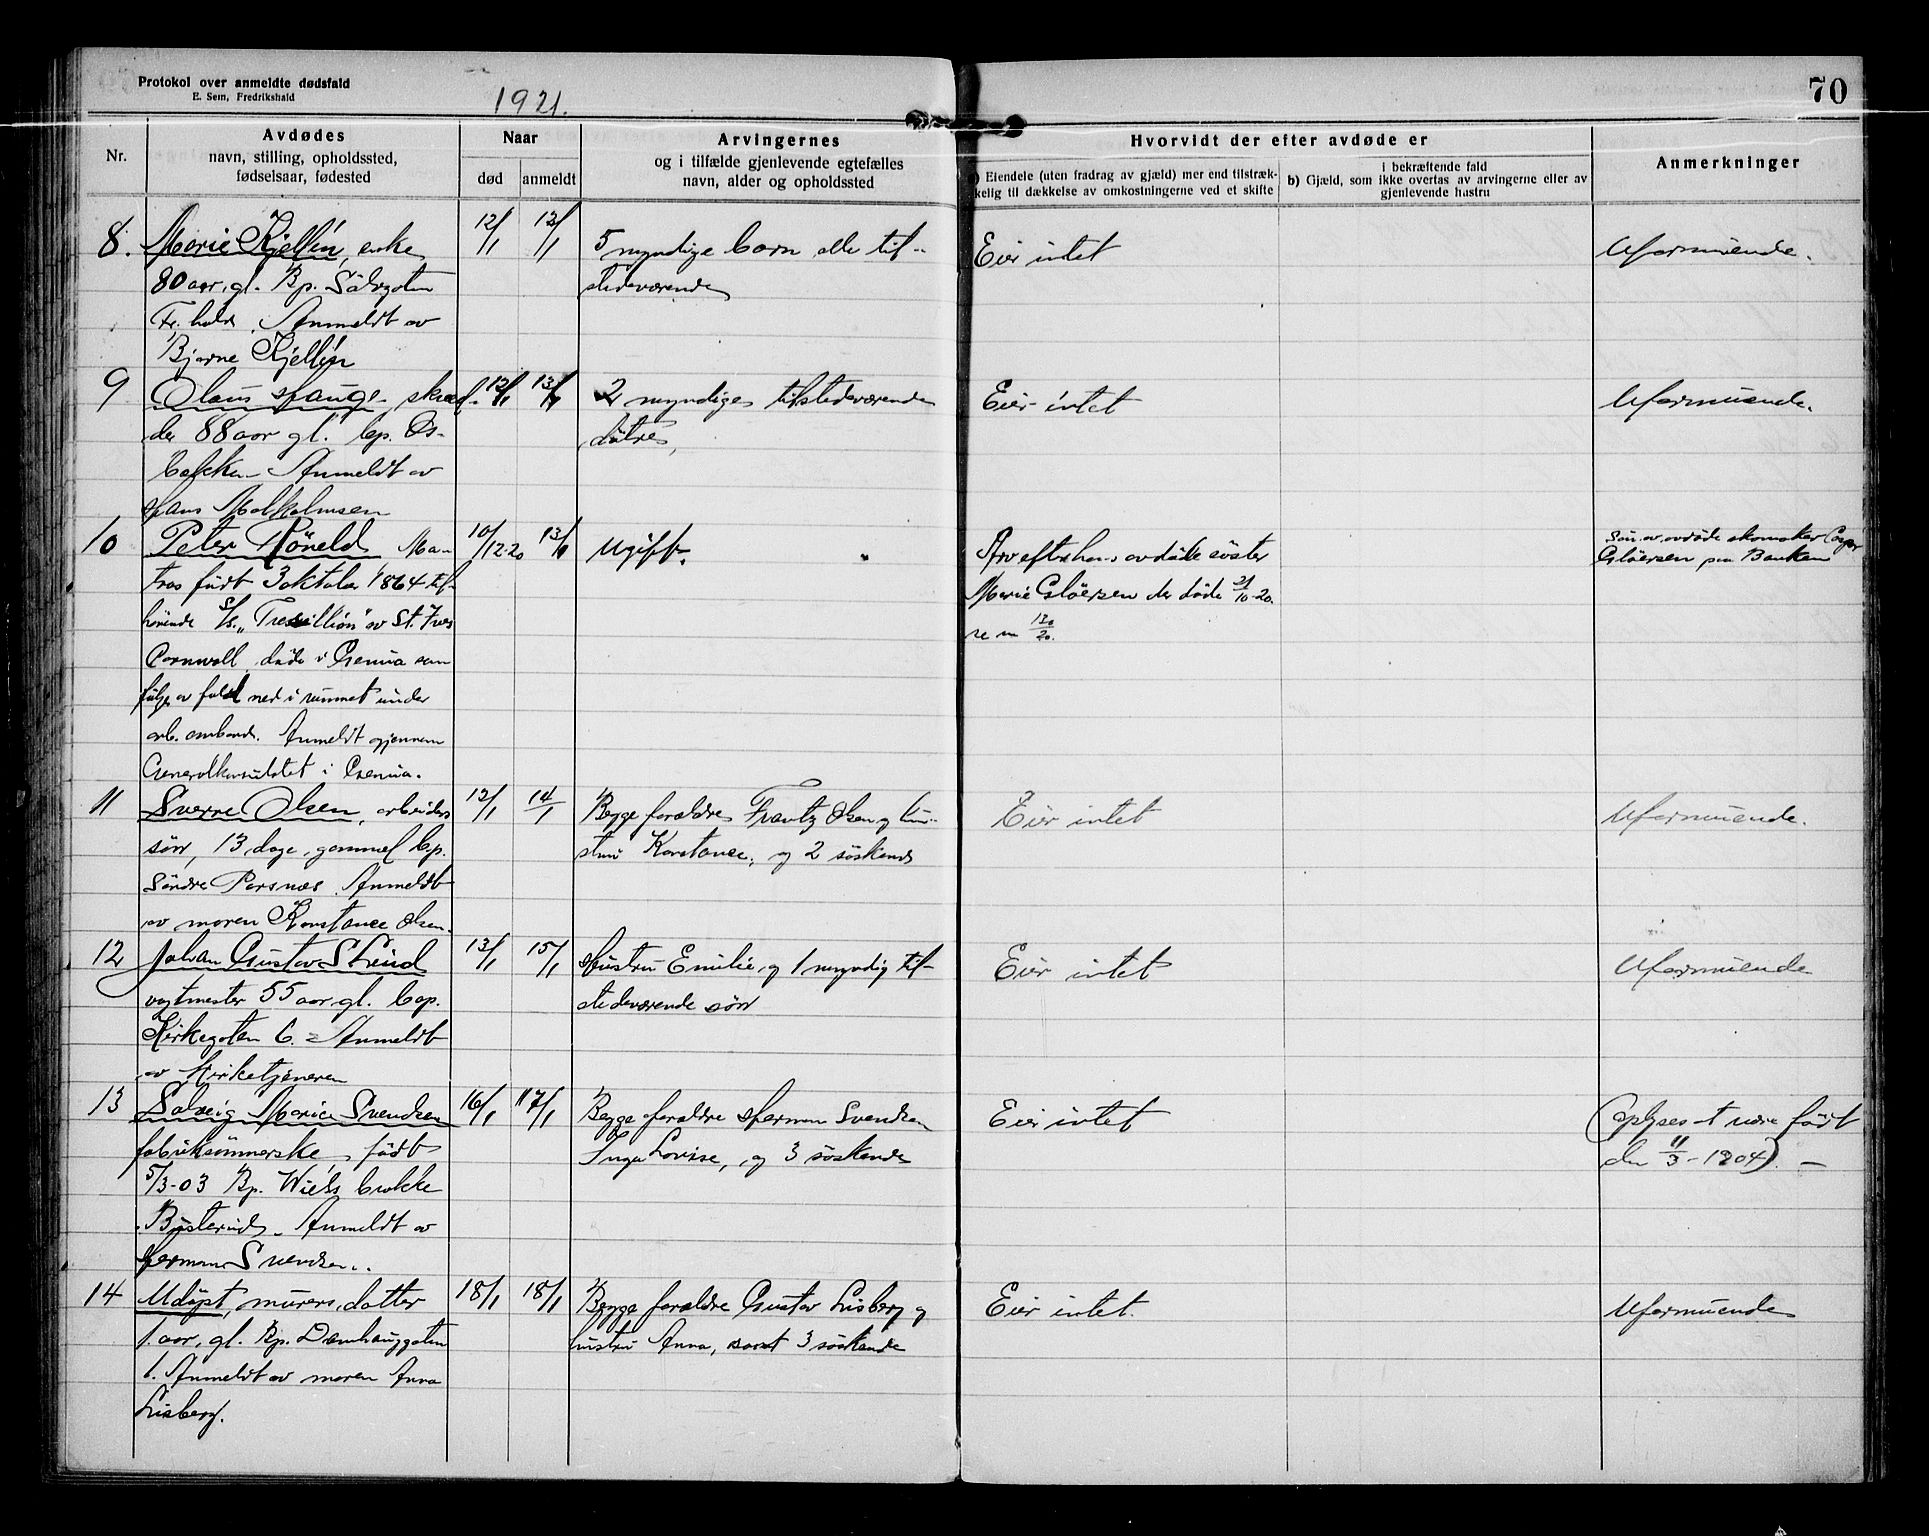 Protokol over anmeldte dødsfald
E. Sem, Fredrikshald
1921.
70
Nr.
Avdødes
navn, stilling, opholdssted,
fødselsaar, fødested
Naar
død
anmeldt
Arvingernes
og i tilfælde gjenlevende egtefælles
navn, alder og opholdssted
Hvorvidt der efter avdøde er
) Eiendele (uten fradrag av gjæld) mer end tilstræk-
kelig til dækkelse av omkostningerne ved et skifte
i bekræftende fald
b) Gjæld, som ikke overtas av arvingerne eller av
gjenlevende hustru
Anmerkninger
8. Marie Kjellin, enke
80 aar, gl. Bp. Sålvgaten
Fr.hald. Anmeldt av
Bjarne Kjellin
12/1
13/1
5 myndige barn alle til-
stedeværende
Eier intet
Uformuende.
9 Olaus Hauge skræd-
der 88 aar gl. bp. Os-
bakken Anmeldt av
Hans Malkolmsen
12/1
13/1
2 myndige tilstedeværende
døtre,
Eier intet
Uformuende.
10 Peter Röneld Ma-
tros født 3 oktober 1864 til-
hørende S/s. "Tressillion" av St. Ives
Cornwall, døde i Genua som
følge av fald ned i rummet under
arb. ombord. Anmeldt gjennem
Generalkonsulatet i Genua.
10/12-20
13/1
Ugift.
Arv efter hans avdøde søster
Marie Glöersen der døde 21/10-20.
Søn av avdøde skomaker
Glöersen paa Banken
11 Sverre Olsen, arbeiders
søn, 13 dage, gammel bp.
Søndre Parsnæs. Anmeldt
av moren Konstance Olsen.
12/1
14/1
Begge forældre Frantz Olsen og hu-
stru Konstance, og 2 søskende
Eier intet
Uformuende.
12 Johan Gustav Strind
vagtmester 55 aar, gl. bop.
Kirkegaten 6. Anmeldt
av Kirketjeneren
13/1
15/1
Hustru Emilie, og 1 myndig til-
stedeværende søn
Eier intet
Uformuende
13 Solveig Marie Svendsen
fabriksømmerske, født
5/3-03 Bp. Wiels brakke
Busterud. Anmeldt av
Herman Svendsen..
16/1
17/1
Begge forældre Herman Svendsen
Inga Lovise, og 3 søskende
Eier intet
(oplyses at være født
den 11/3-1904). —
14 Udøpt, murers, datter
1. aar, gl. Bp. Damhauggaten
1. Anmeldt av moren Anna
Lisberg.
18/1
18/1
Begge forældre Gustav Lisberg og
hustru Anna, samt 3 søskende
Eier intet.
Uformuende